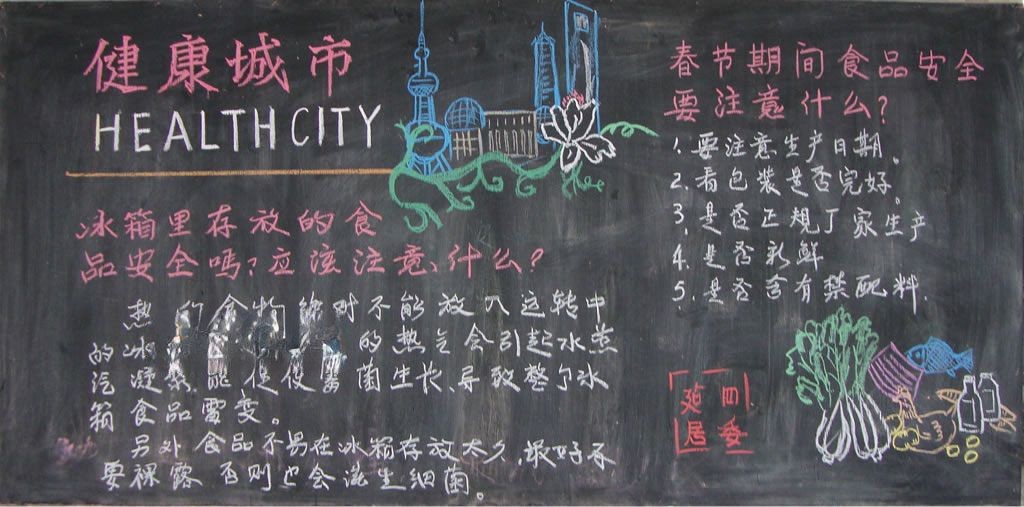 健康城市
HEALTH CITY
冰箱里存放的食
品安全吗?应该注意什么?
热的食物绝对不能放入运转中
的冰 的热气会引起水蒸
汽凝 能促使 菌生长,导致整个冰
箱食品霉变。
另外食品不易在冰箱存放太久,最好不
要裸露 否则也会滋生细菌。
春节期间食品安全
要注意什么?
1.要注意生产日期。
2.看包装是否完好。
3.是否正规厂家生产
4.是否新鲜
5.是否含有禁配料.
延四
居委